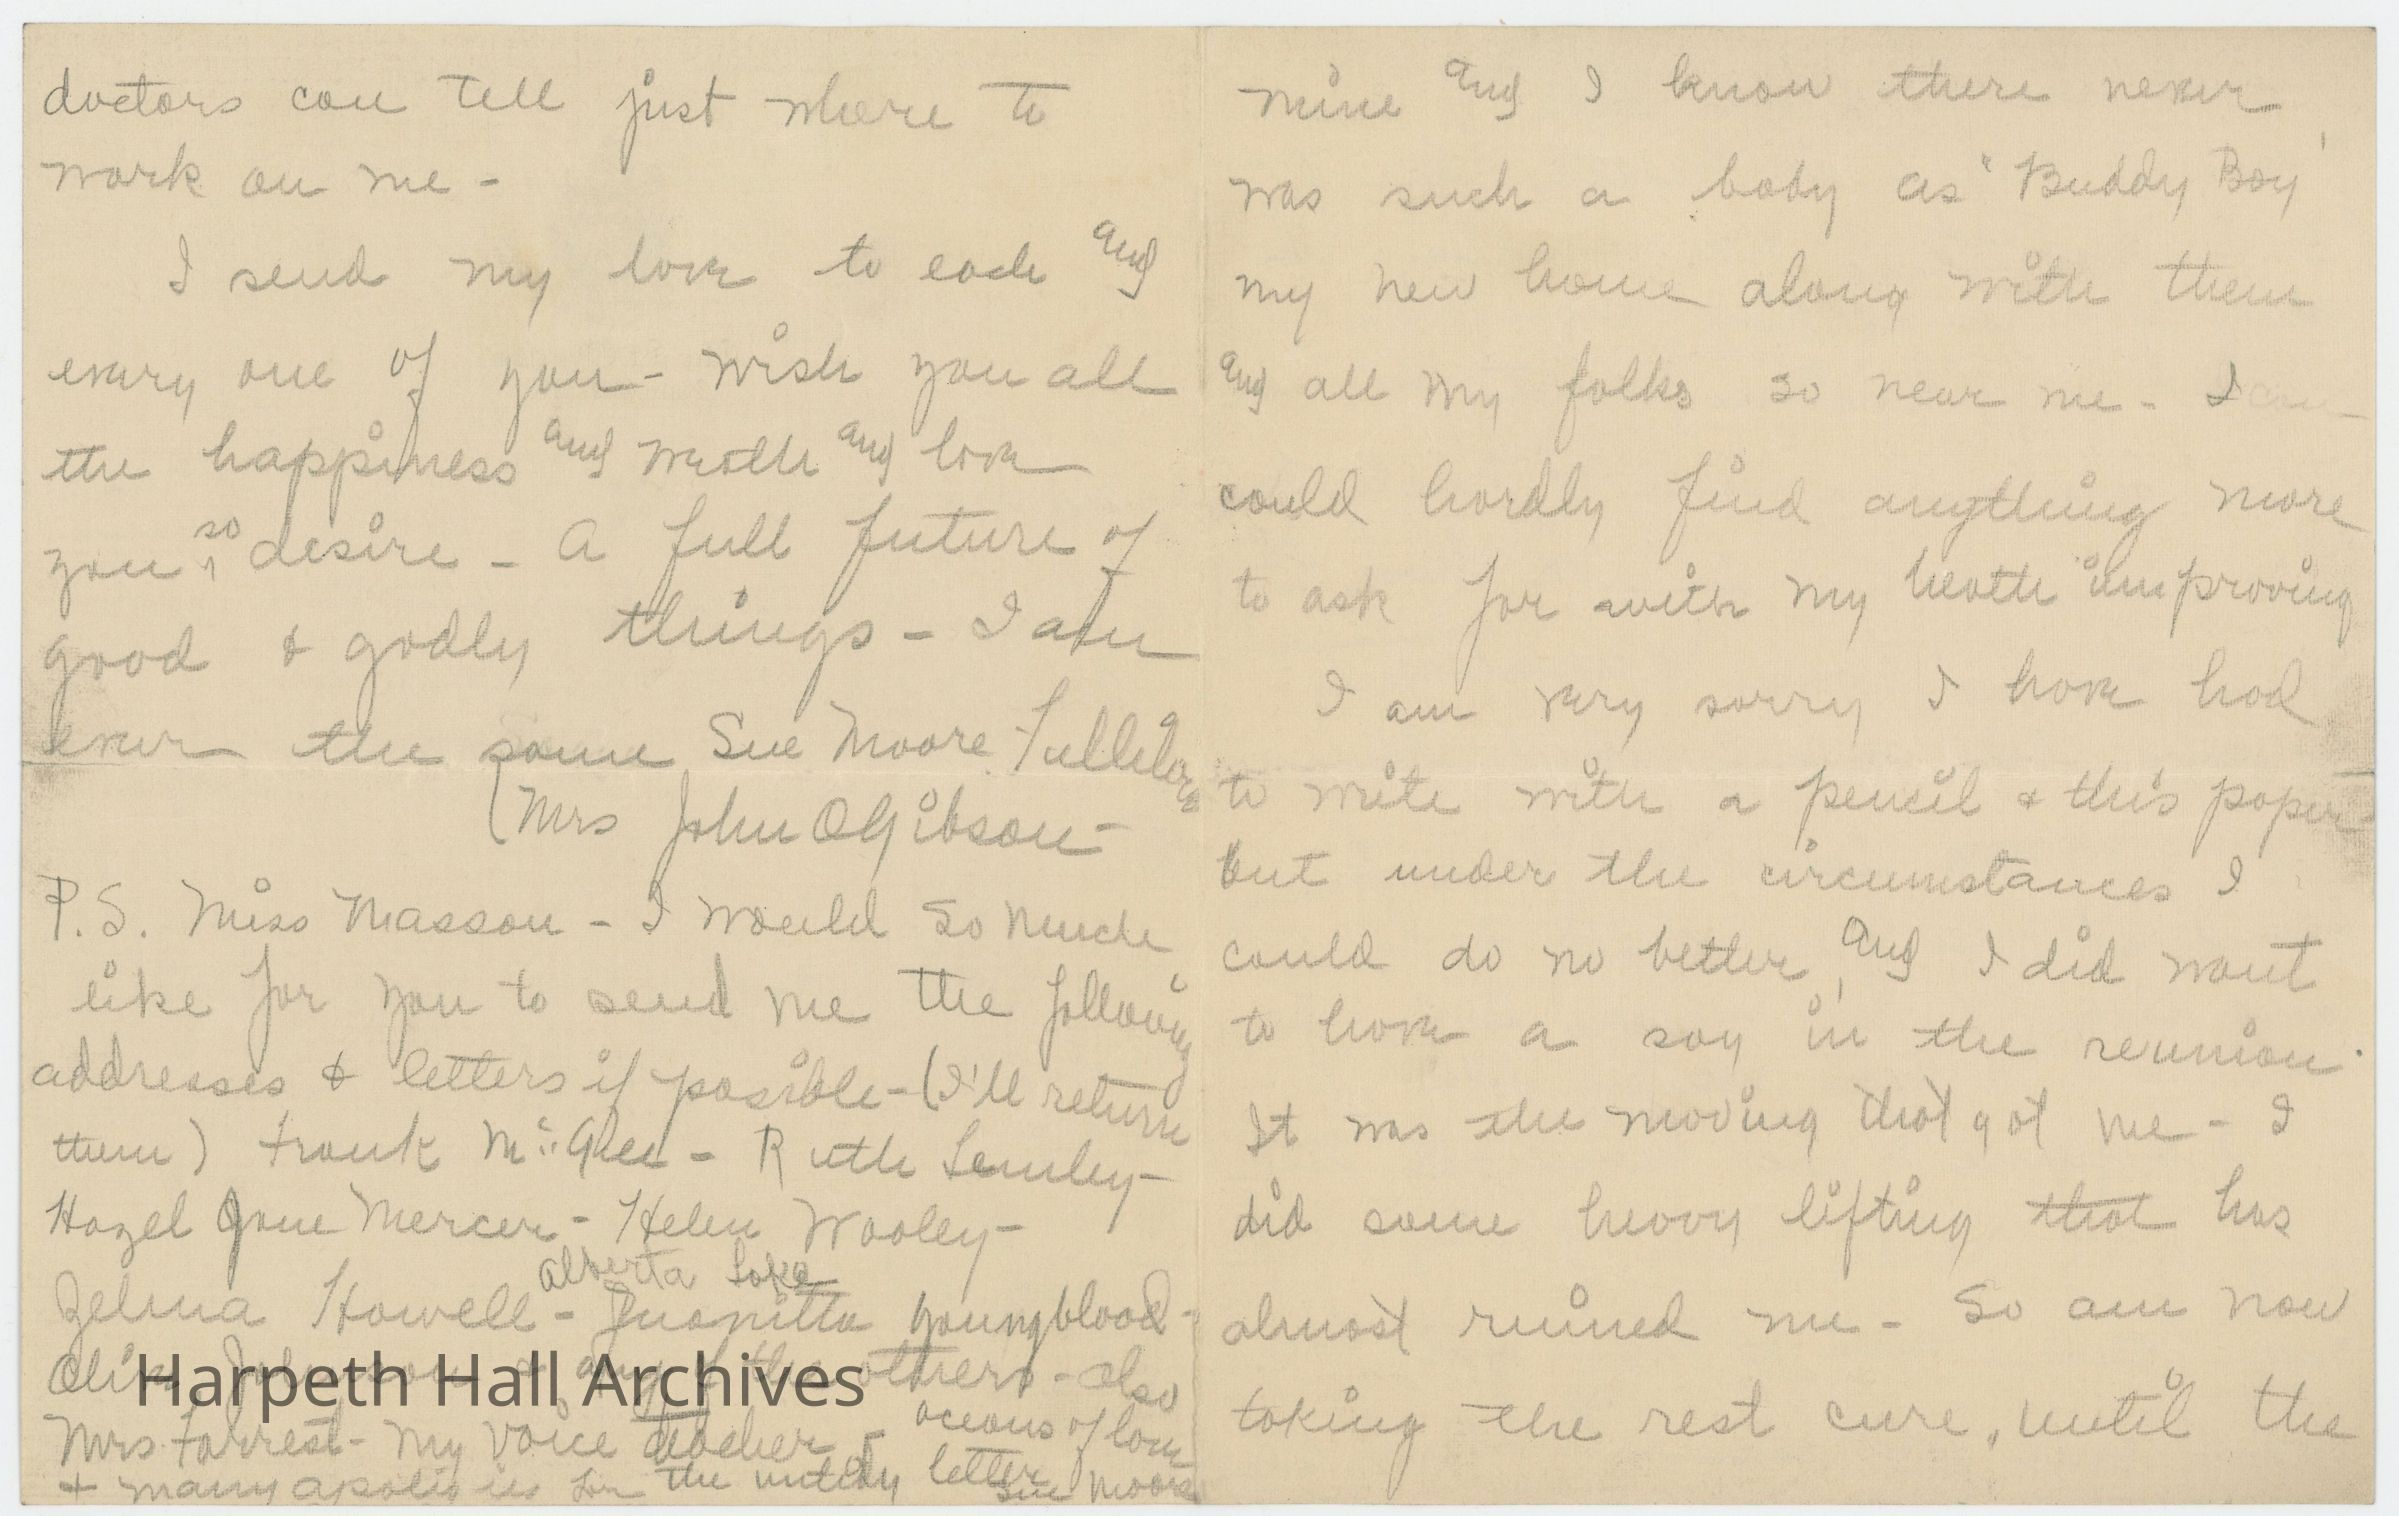 mine and I know there never
was such a baby as "Buddy Boy"
my new home along with them
and all my folks so near me - I
could hardly find anything more
to ask for with my health improving
I am very sorry I have had
to write with a pencil & this paper
but under the circumstances I
could do no better, and I did want
to have a say in the reunion.
It was the moving that got me - I
did some heavy lifting that has
almost ruined me - So am now
taking the rest cure, until the
doctors can tell just where to
work on me -
I send my love to each and
every one of you - wish you all
the happiness and wealth and love
you so desire - A full future of
good & godly things - I am
ever the same Sue Moore
(Mrs John O Gibson -
P.S. Miss Masson - I would so much
like for you to send me the following
addresses & letters if possible - (I'll return
them) Frank - Ruth Lemley -
Hazel Jane Mercer - Helen Wooley -
Alberta
Zelma Howell - Juanitta Youngblood -
Johnson & any of the others - also
Mrs Forrest - my voice teacher - oceans of love
& many apologies for the untidy letter
Sue Moore
Harpeth Hall Archives